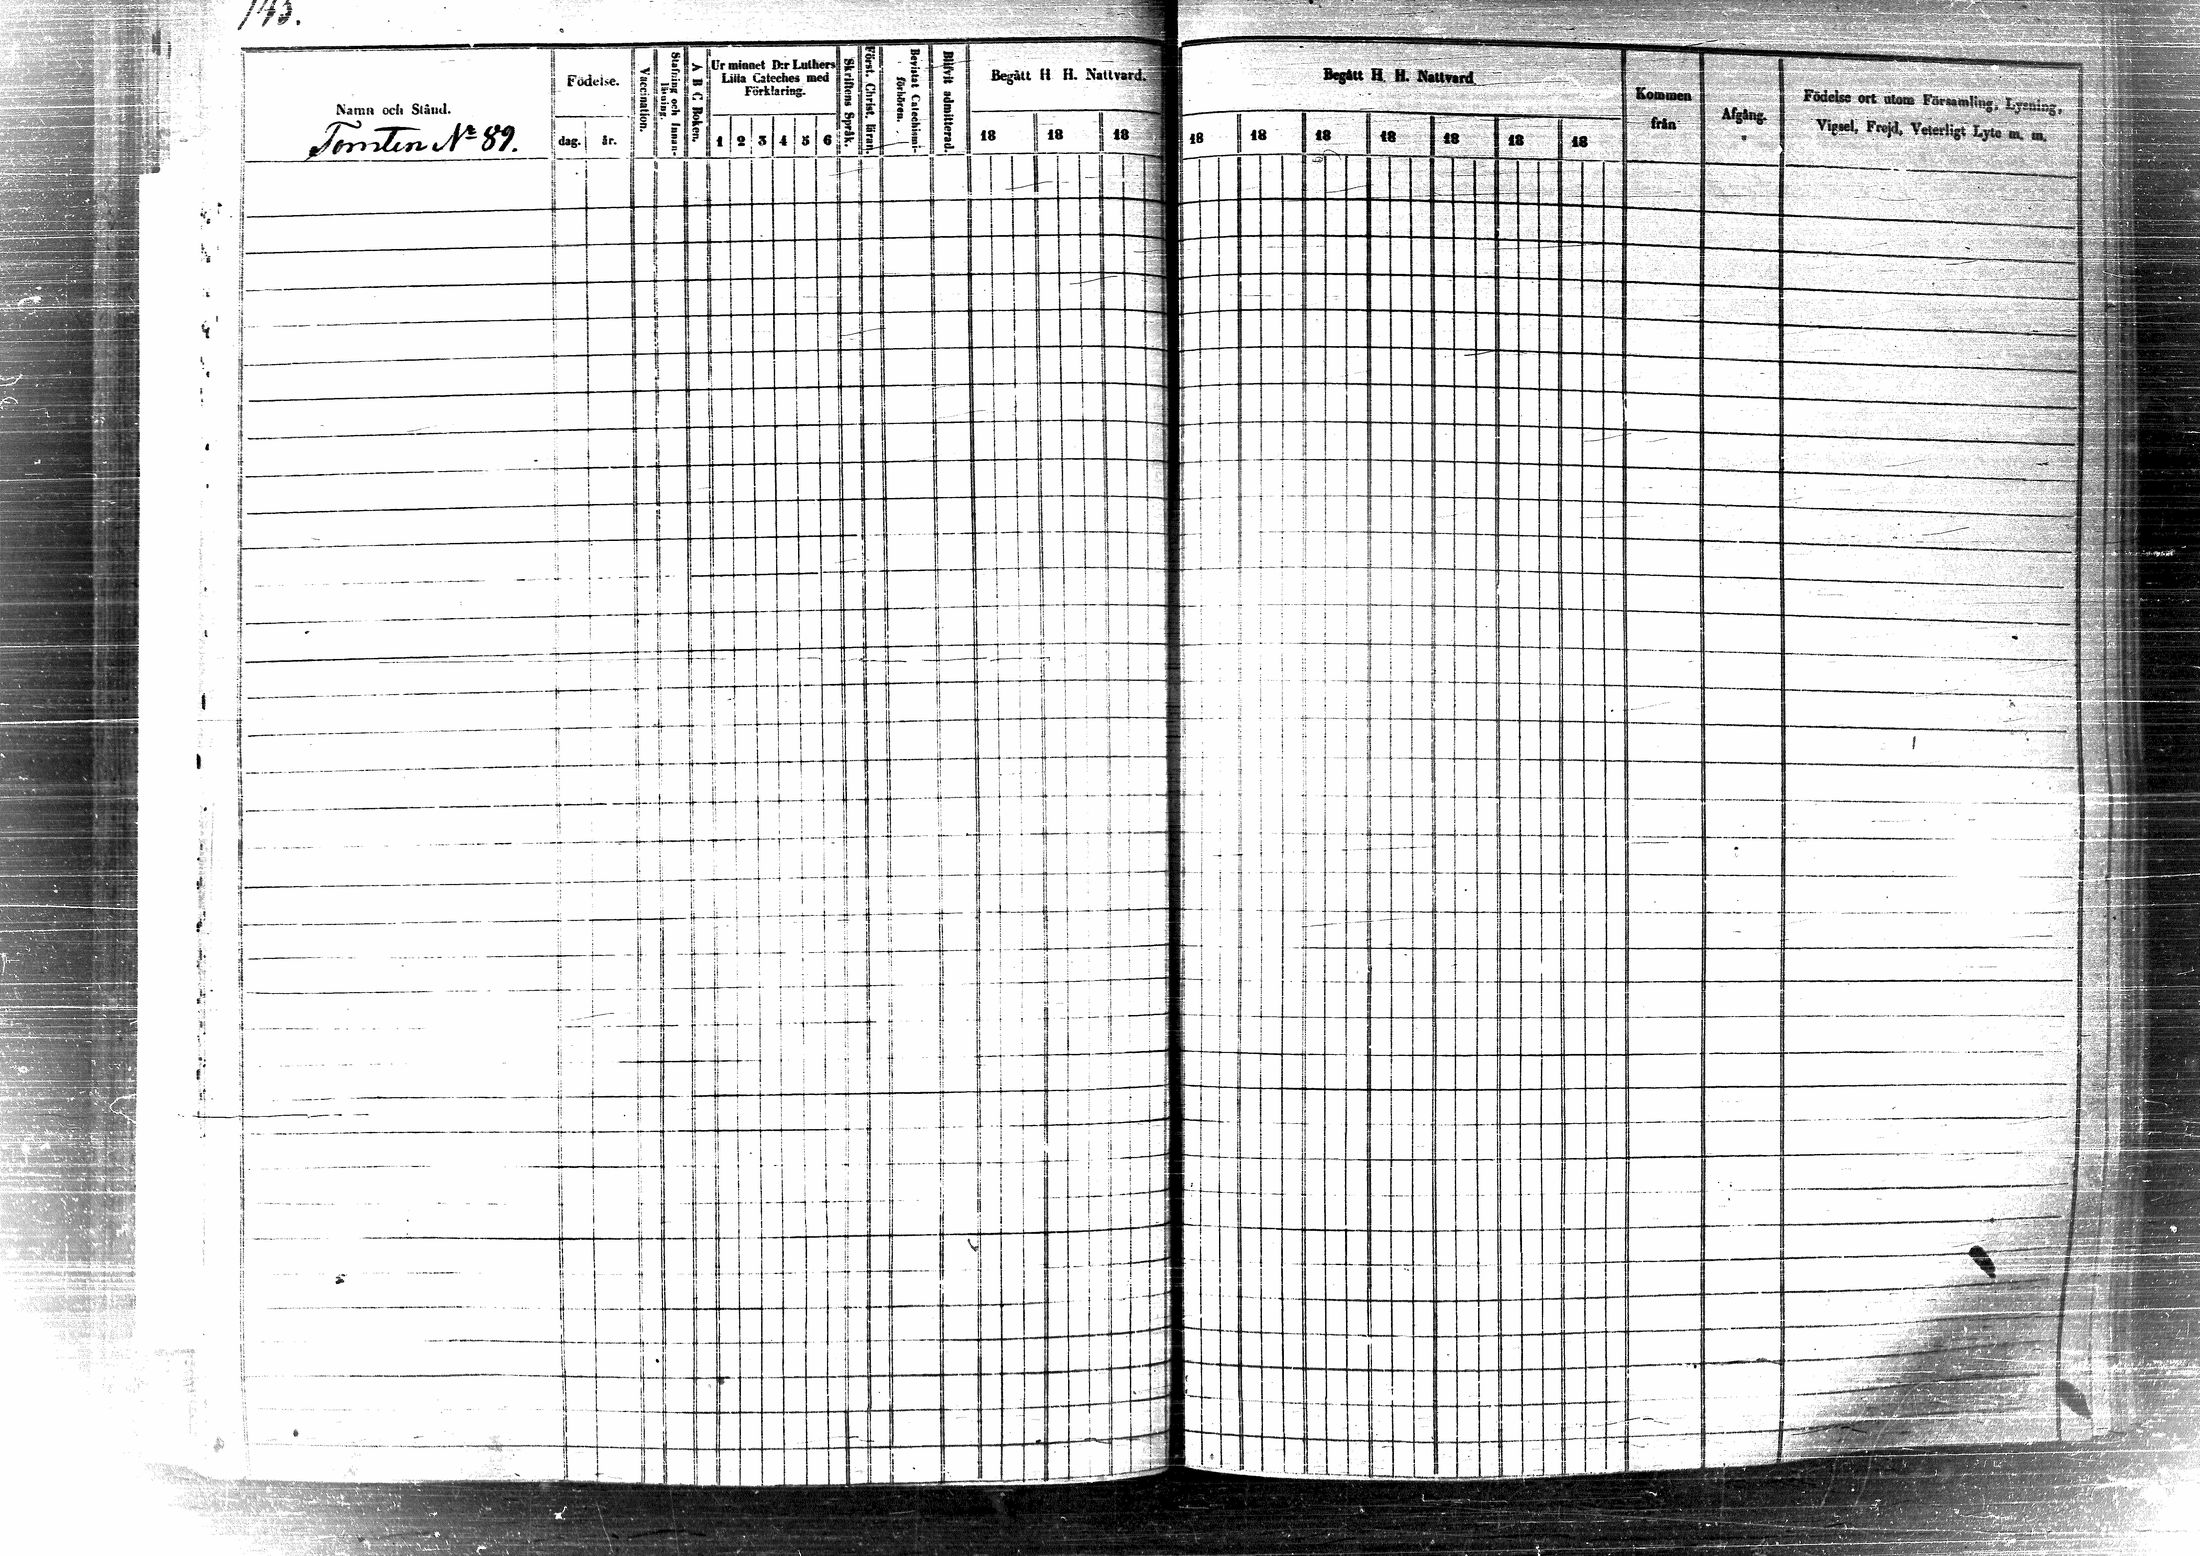 143.
Namn och Stånd.
Tomten № 89.
Födelse.
dag. år.
Vaccination.
Stafning och Innan-
läsning.
A B C Boken.
Ur minnet D:r Luthers
Lilla Cateches med
Förklaring.
1 2 3 4 5 6
Skriftens Språk.
Först. Christ. läran.
Bevistat Catechismi-
förhören.
Blifvit admitterad.
Begått H H. Nattvard.
18 18 18
Begått H. H. Nattvard
18 18 18 18 18 18 18
Kommen
från
Afgång.
Födelse ort utom Församling, Lysning,
Vigsel, Frejd, Veterligt Lyte m. m.